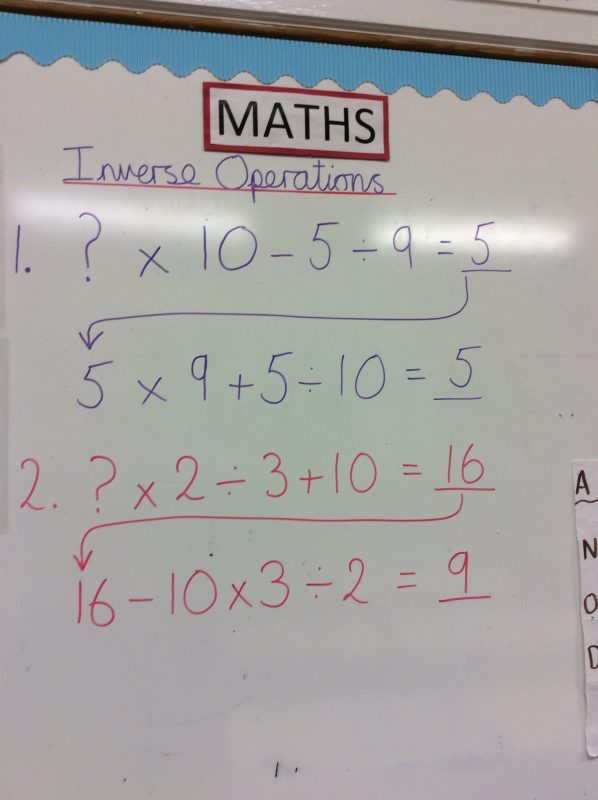 MATHS
Inverse Operations
1. ? × 10 – 5 ÷ 9 = 5
5 × 9 + 5 ÷ 10 = 5
2. ? × 2 ÷ 3 + 10 = 16
16 – 10 × 3 ÷ 2 = 9
A
N
O
D